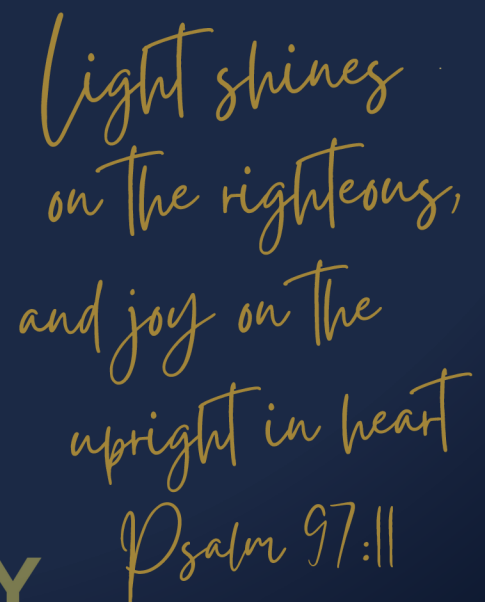 Light shines
on the righteous,
and joy on the
upright in heart
Psalm 97:11
Y